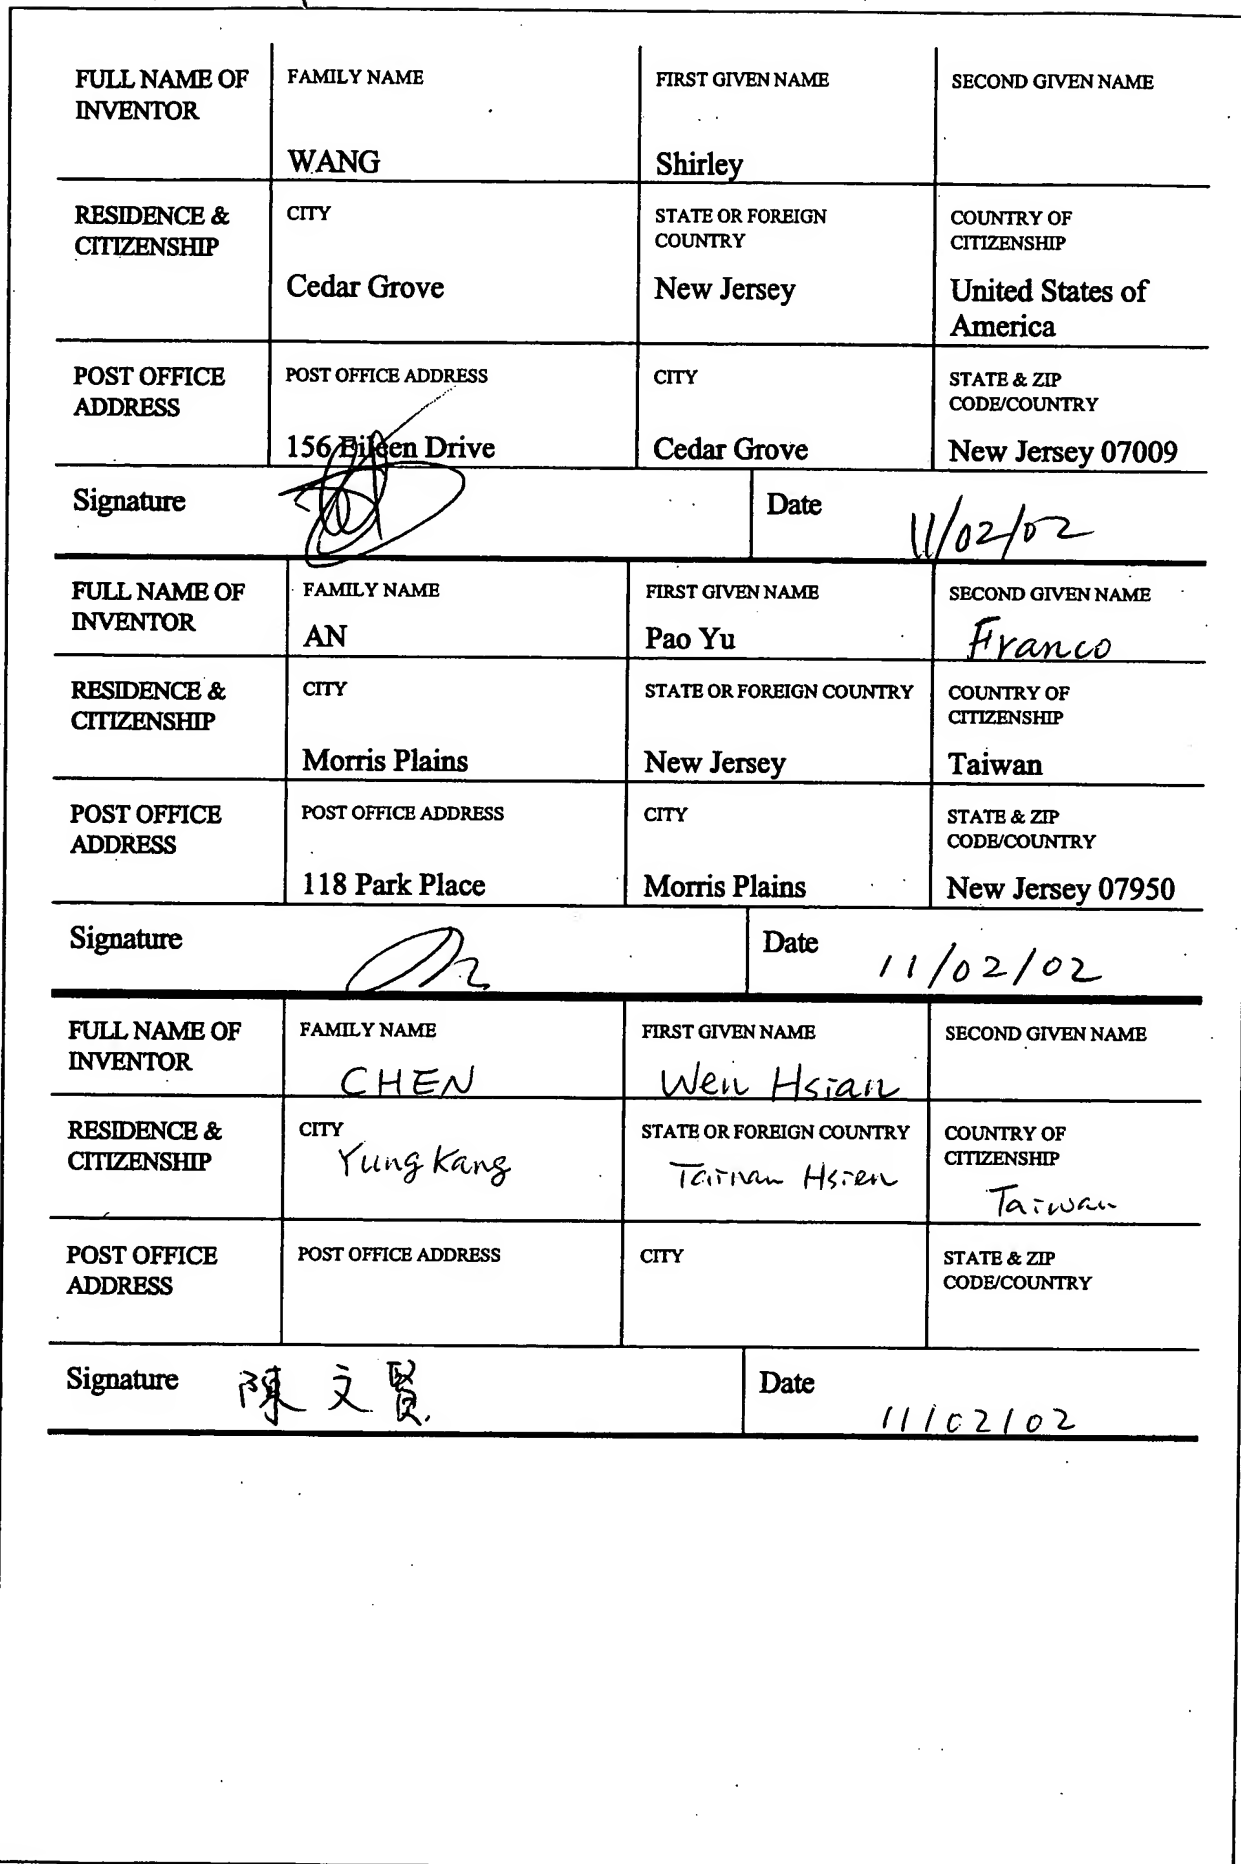 FULL NAME OF INVENTOR
FAMILY NAME
WANG
FIRST GIVEN NAME
Shirley
SECOND GIVEN NAME
RESIDENCE &
CITIZENSHIP
CITY
Cedar Grove
STATE OR FOREIGN
COUNTRY
New Jersey
COUNTRY OF
CITIZENSHIP
United States of
America
POST OFFICE
ADDRESS
POST OFFICE ADDRESS
156 Eileen Drive
CITY
Cedar Grove
STATE & ZIP
CODE/COUNTRY
New Jersey 07009
Signature
Date
11/02/02
FULL NAME OF
INVENTOR
FAMILY NAME
AN
FIRST GIVEN NAME
Pao Yu
SECOND GIVEN NAME
Franco
RESIDENCE &
CITIZENSHIP
CITY
Morris Plains
STATE OR FOREIGN COUNTRY
New Jersey
COUNTRY OF
CITIZENSHIP
Taiwan
POST OFFICE
ADDRESS
POST OFFICE ADDRESS
118 Park Place
CITY
Morris Plains
STATE & ZIP
CODE/COUNTRY
New Jersey 07950
Signature
Date
11/02/02
FULL NAME OF
INVENTOR
FAMILY NAME
CHEN
FIRST GIVEN NAME
Wen Hsian
SECOND GIVEN NAME
RESIDENCE &
CITIZENSHIP
CITY
Yung Kang
STATE OR FOREIGN COUNTRY
Tainan Hsien
COUNTRY OF
CITIZENSHIP
Taiwan
POST OFFICE
ADDRESS
POST OFFICE ADDRESS
CITY
STATE & ZIP
CODE/COUNTRY
Signature
陳文賢
Date
11/02/02